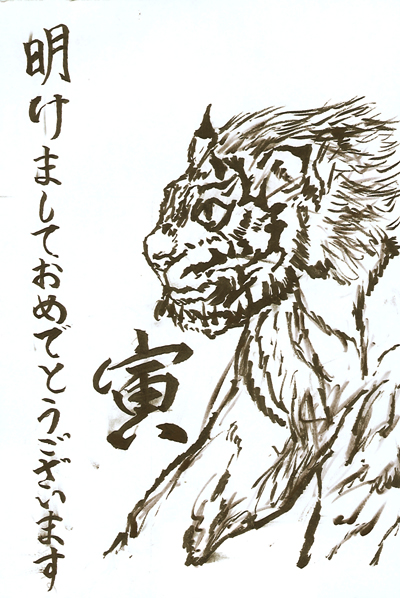 明けましておめでとうございます
寅